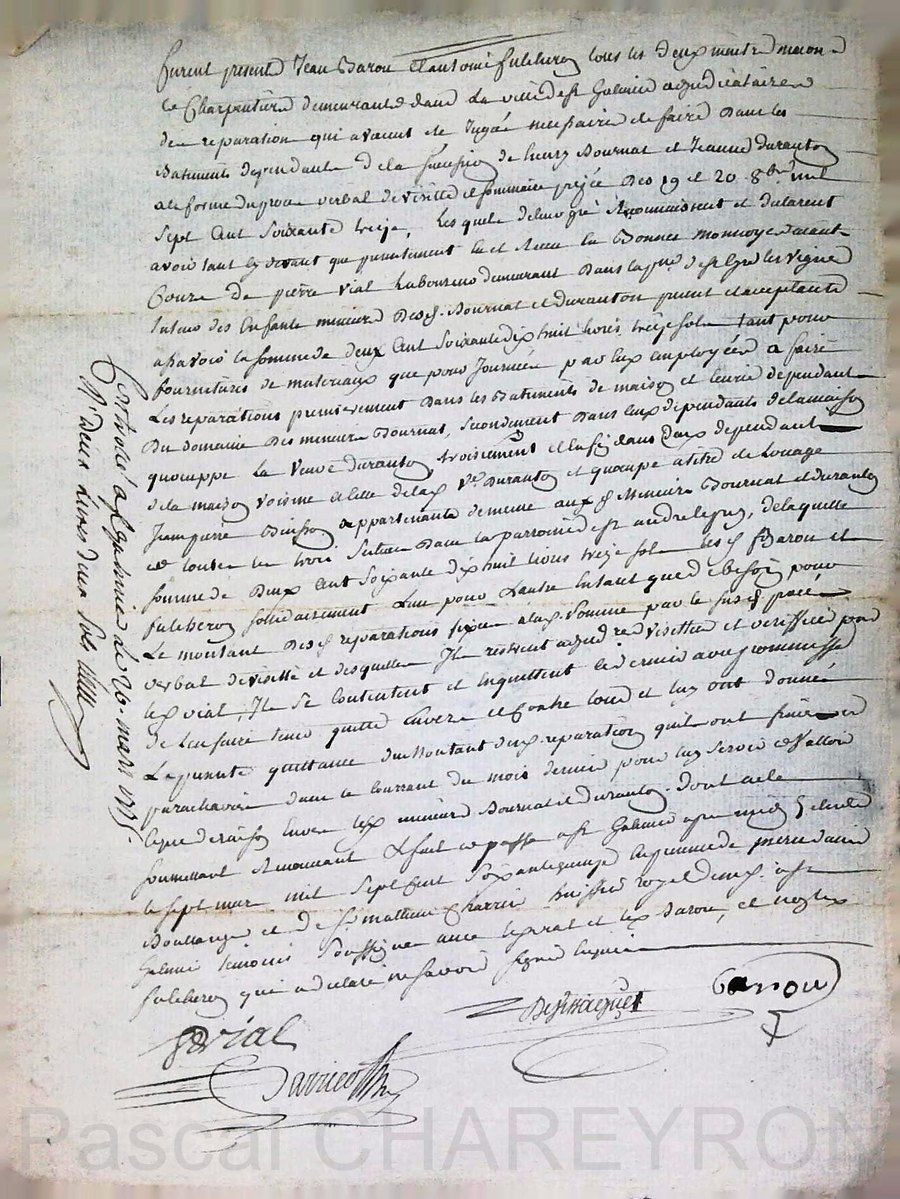 furent present Jean Barou et antoine fulcheron tous les deux maitre macon
et Charpentiere demeurants dans La ville de st Galmier adjudicataire
des reparation qui avaient ete Jugée necessaire de faire Dans les
Batiments dependants de la succession de henry Bournat et Jeanne duranton
a la forme du proces verbal de visitte et sommaire prisée Des 19 et 20 8bre mil
Sept Cent Soixante treize, Les quels de leur gré Reconnaissent et declarent
avoir tant cy devant que presentement Eu et Receu En Bonnes monnoye ayant
Cours de pierre Vial Laboureur demeurant Dans la psse de st Cyr les vigne
tuteur des Enfants mineurs Desd. Bournat et duranton present et acceptante
assavoir la somme de deux Cent Soixante dix huit livres treize sols tant pour
fournitures de materiaux que pour Journées par Eux employées a faire
Les reparations premierement Dans les Batiments de maison et Ecurie dependant
Du domaine Des mineurs Bournat, Secondement Dans Ceux dependants de la maison
quoccuppe La Veuve duranton troisiement et Enfin dans Ceux dependant
de la maison voisine a Celle de lad. Ve Duranton et quoccupe a titre de Louage
Jean pierre appartenants de meme aux d. Mineurs Bournat et duranton
et toutes les trois Situées Dans la parroisse de st andre le puy, de laquelle
somme de Deux Cent Soixante dix huit livres treize sols les d Barou et
fulcheron sollidairement L'un pour L'autre En tant que de Besoin pour
Le montant Desd reparations fixée a lad. Somme par le susd procé
verbal de visitte et desquelles Il restent a jour visittée et veriffiée par
led vial, Il Se Contentent et En quittent ce dernier avec promesse
de L'en faire tenir quitte Envers et Contre tous et luy ont donnée
La presente quittance du Montant desd. reparations qu'il ont finie et
parachevée dans le Courrant du mois dernier pour luy Servir et Valloir
ce que de raison Envers lesd mineurs Bournat et duranton. Dont acte
soumettant et renoncant fait et passé a st Galmier apres midy
le sept mars mil Sept Cent Soixante quinze En presence de
Boullanger et de sr mathieu Charrin huissier royal a st
Galmier temoins Soussignés avec led vial et led Barou, et non led
fulcheron qui a declaré ne Savoir signer Enquis
Barou
P vial
Controlé a st Galmier le 20. mars 1775
R. deux Livres deux sols
Pascal CHAREYRON